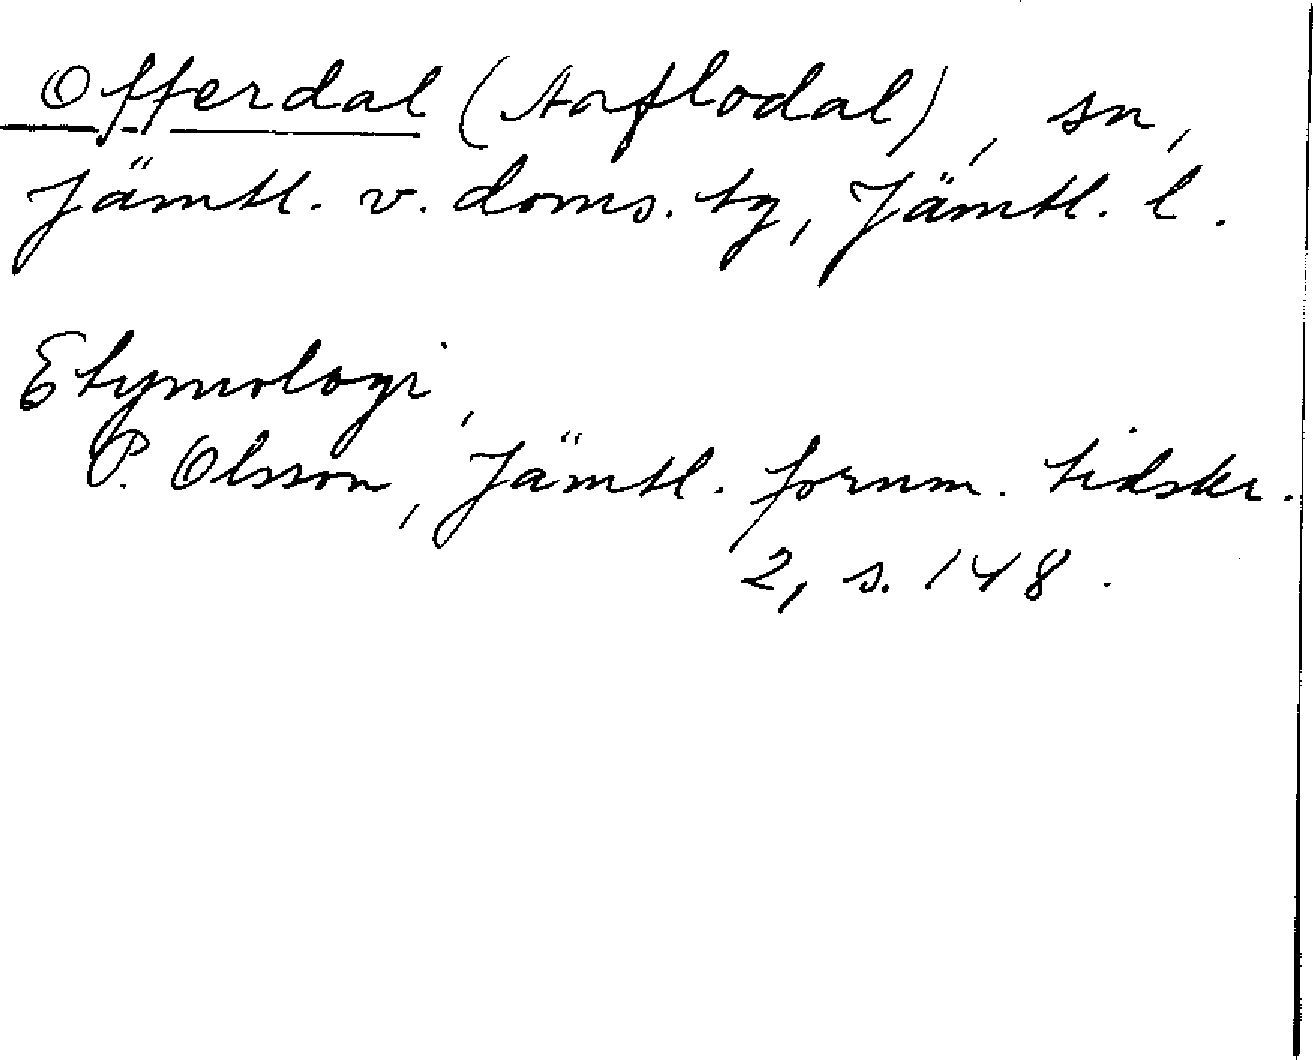 Offerdal (Aaflodal), sn,
Jämtl. v. doms. tg, Jämtl. l.
Etymologi,
P. Olsson, Jämtl. fornm. tidskr.
2, s. 148.